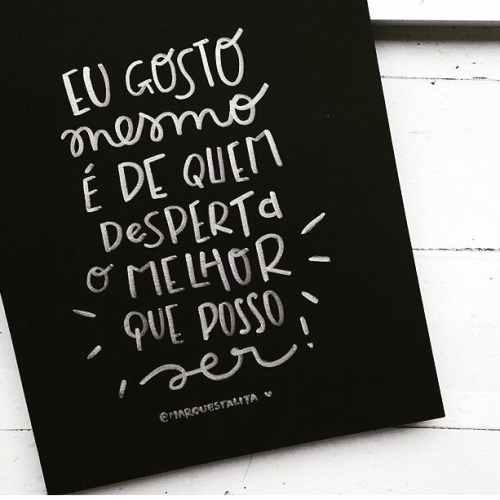 EU GOSTO
mesmo
É DE QUEM
DeSPERTa
O MELHOR
QUE POSSO
ser!
@MARQUESTALITA ♥